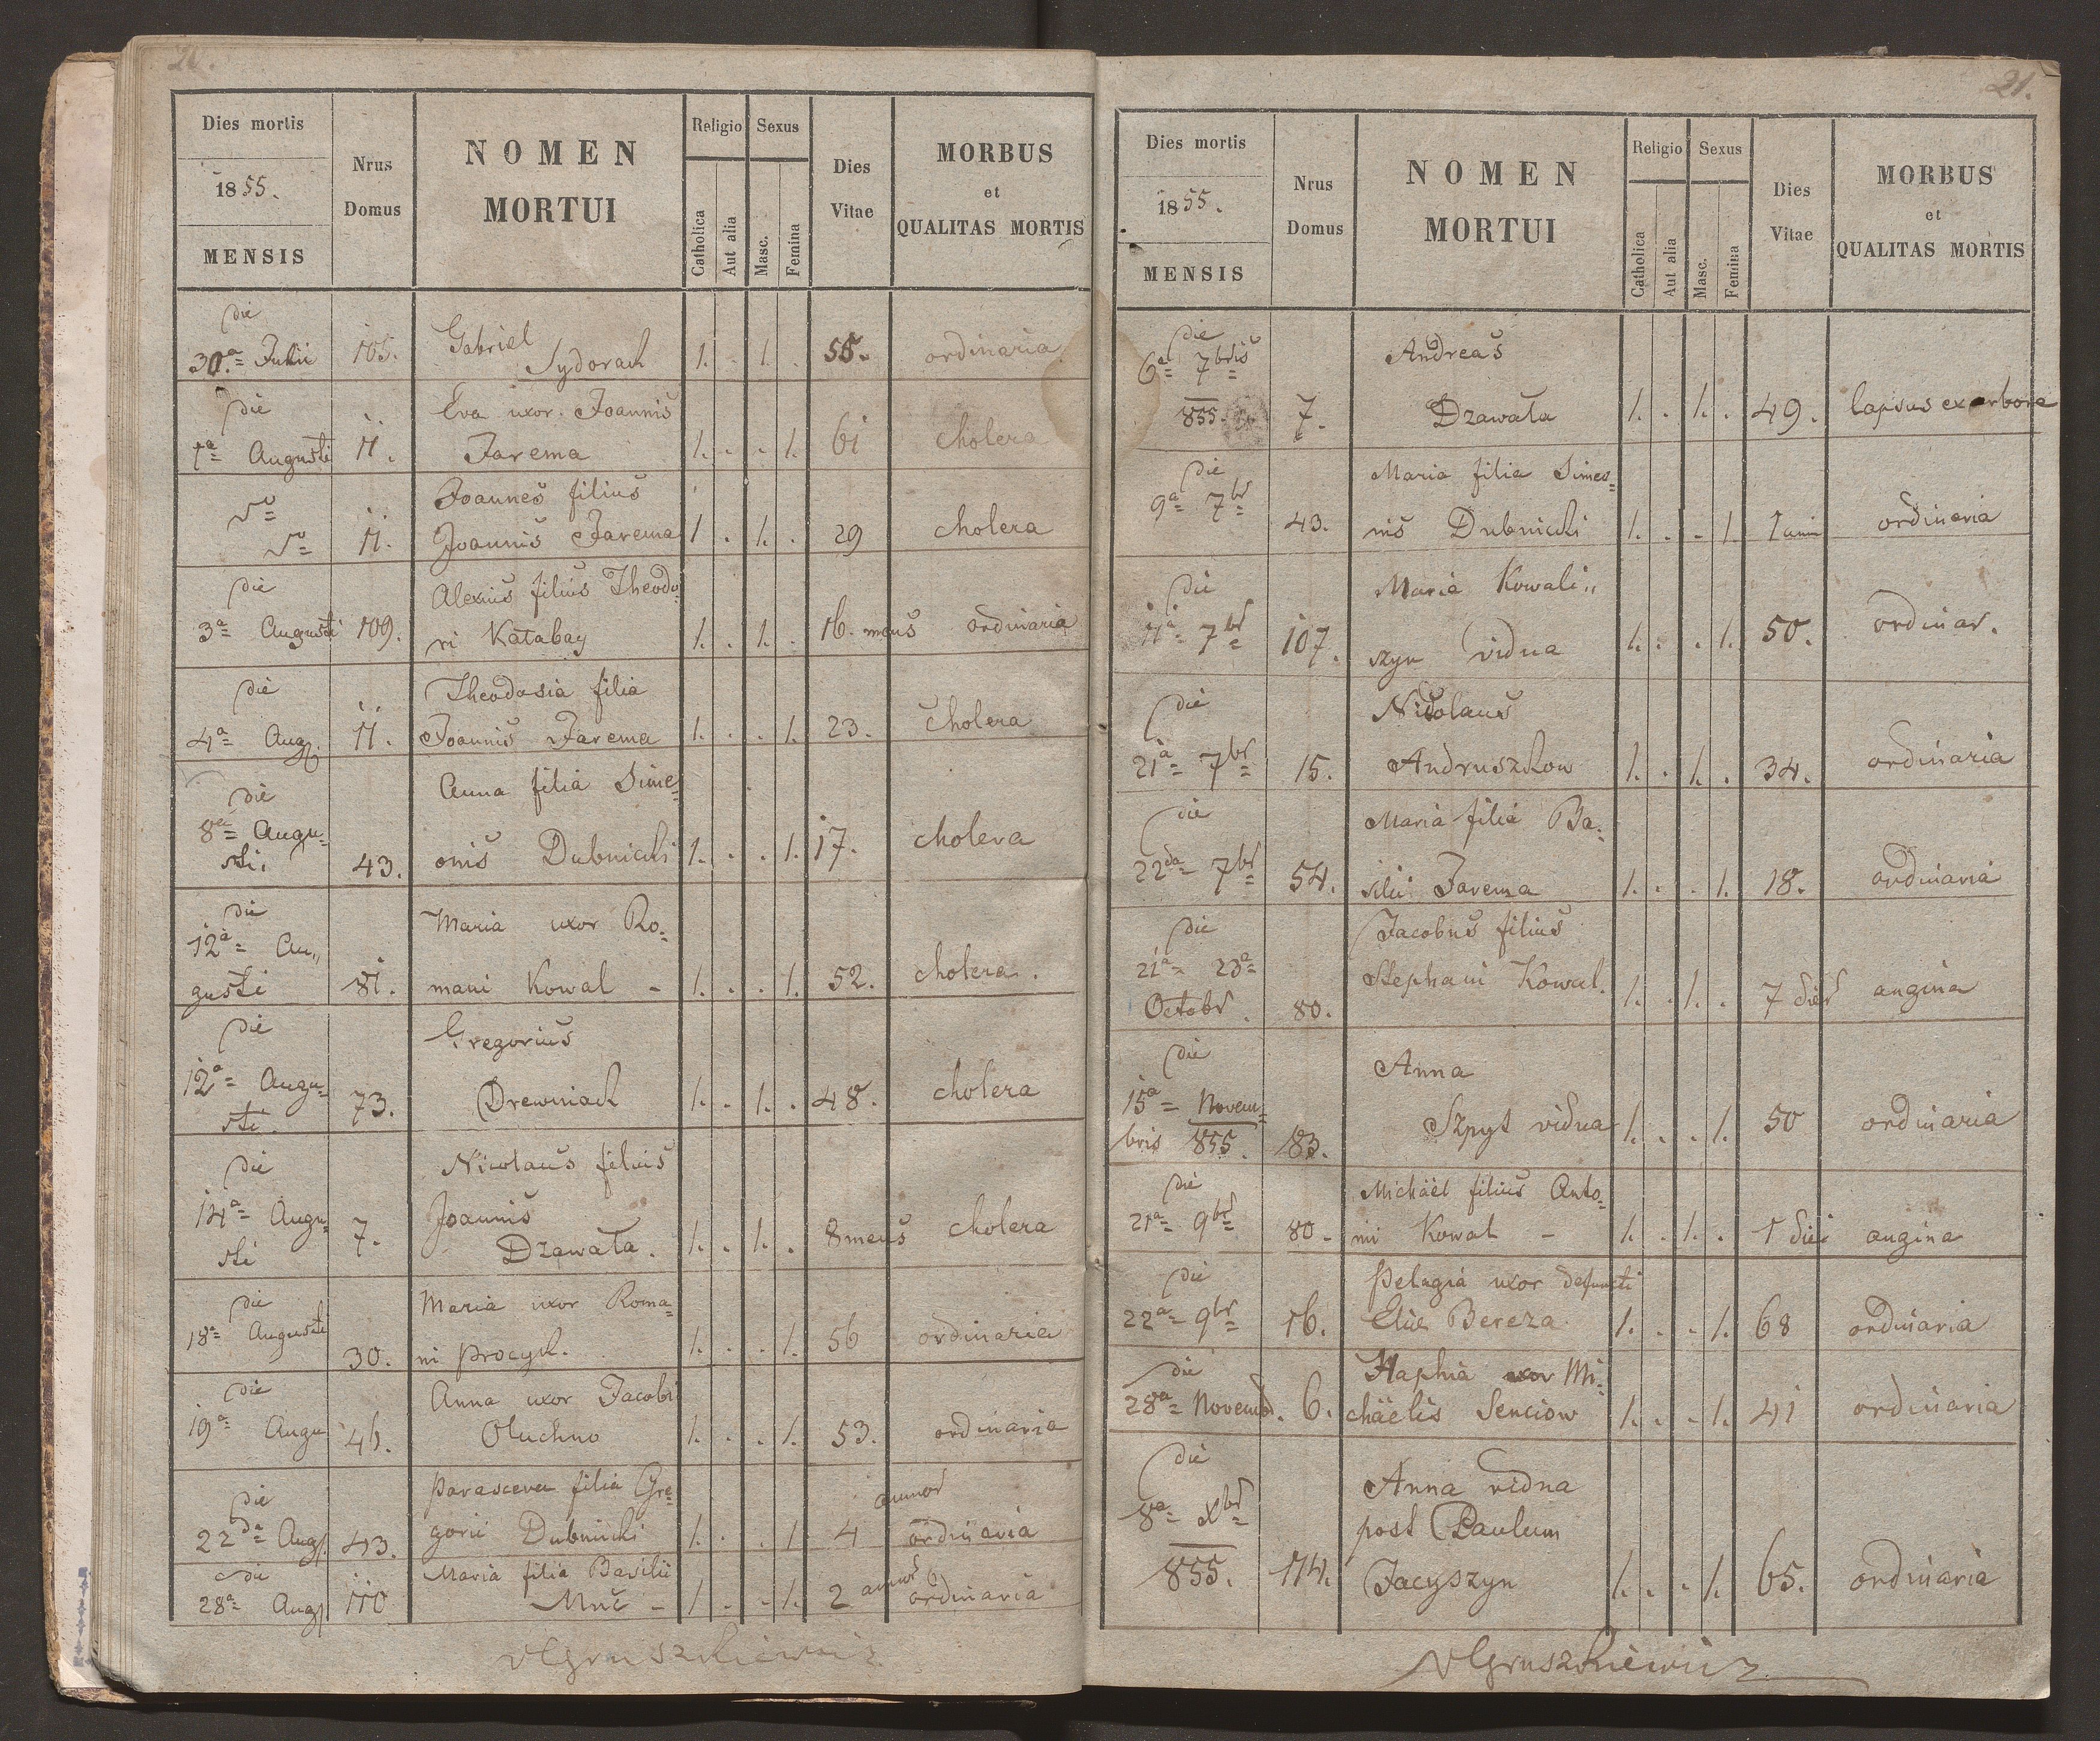 20.
Dies mortis
1855.
MENSIS
Nrus Domus
NOMEN MORTUI
Religio
Catholica
Aut alia
Sexus
Masc.
Femina
Dies Vitae
MORBUS et QUALITAS MORTIS
die
30.a Julii 105. Gabriel
Sydorach 1. . 1. . 55. ordinaria
die Eva uxor Joannis
1a Augusti 11. Jarema 1. . . 1. 61 cholera
Joannes filius
11. Joannis Jarema 1 . 1. . 29 cholera
die Alexius filius Theodo=
3a Augusti 109. ri Katabay 1. . 1. . 16. mens ordinaria
die Theodosia filia
4a Aug. 11. Joannis Jarema 1. . . 1. 23. cholera
die Anna filia Sime=
8a Augu=
sti. 43. onis Dubnicki 1. . . 1. 17. cholera
die Maria uxor Ro=
12a Au„
gusti 81. mani Kowal - 1. . . 1. 52. cholera.
die Gregorius
12a Augu=
sti. 73. Drewniach 1. . 1. . 48. cholera
die Nicolaus filius
14a Augu=
sti 7. Joannis
Dzawała. 1. . 1. . 8 mens cholera
die Maria uxor Roma=
18a Augusti
30. ni Procyk. 1. . . 1. 56 ordinaria
die Anna uxor Jacobi
19a Augu 46. Oluchno 1. . . 1. 53. ordinaria
die Parasceva filia Gre=
22da Aug. 43. gorii Dubnicki 1. . . 1. 4 annor ordinaria
die Maria filia Basilii
28a Aug. 110 - 1. . . 1. 2 annor ordinaria
VGruszkiewicz
21.
Dies mortis
1855.
MENSIS
Nrus Domus
NOMEN MORTUI
Religio
Catholica
Aut alia
Sexus
Masc.
Femina
Dies Vitae
MORBUS et QUALITAS MORTIS
die
6a 7bris Andreas
855. 7. Dzawała 1. . 1. . 49. lapsus ex arbore
die Maria filia Simeo=
9a 7br 43. nis Dubnicki 1. . . 1. 1 anni ordinaria
die Maria Kowali„
11a 7br 107. szyn vidua 1. . . 1. 50. ordinar.
die Nicolaus
21a 7br 15. Andruszkow 1. . 1. . 34. ordinaria
die Maria filia Ba=
22da 7br 54. silii Jarema 1. . . 1. 18. ordinaria
die Jacobus filius
21a 23a Stephani Kowal. 1. . 1. . 7 dier angina
Octobr. 80.
die Anna
15a Novem=
bris 855. 83. Szpyt vidua 1. . . 1. 50 ordinaria
die Michäel filius Anto=
21a 9br 80. nii Kowal - 1. . 1. . 1 diei angina
die Pelagia uxor defuncti
22a 9br 16. Eliæ Bereza 1. . . 1. 68 ordinaria
die Haphia uxor Mi=
28a Novemb. 6. chäelis Senciow 1. . . 1. 41 ordinaria
die Anna vidua
8a Xbr post Paulum
855. 114. Jacyszyn 1. . . 1. 65. ordinaria
VGruszkiewicz